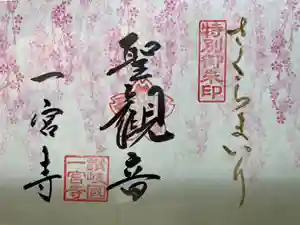 さくらまいり
特別御朱印
聖観音
一宮寺
讃岐國
一宮寺